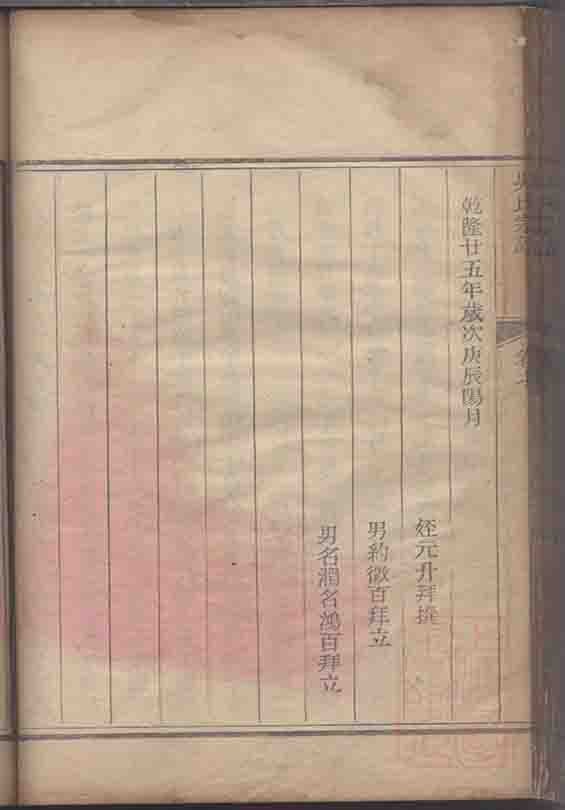 乾隆廿五年歲次庚辰陽月
姪元升拜撰
男約徵百拜立
男名潤名鴻百拜立